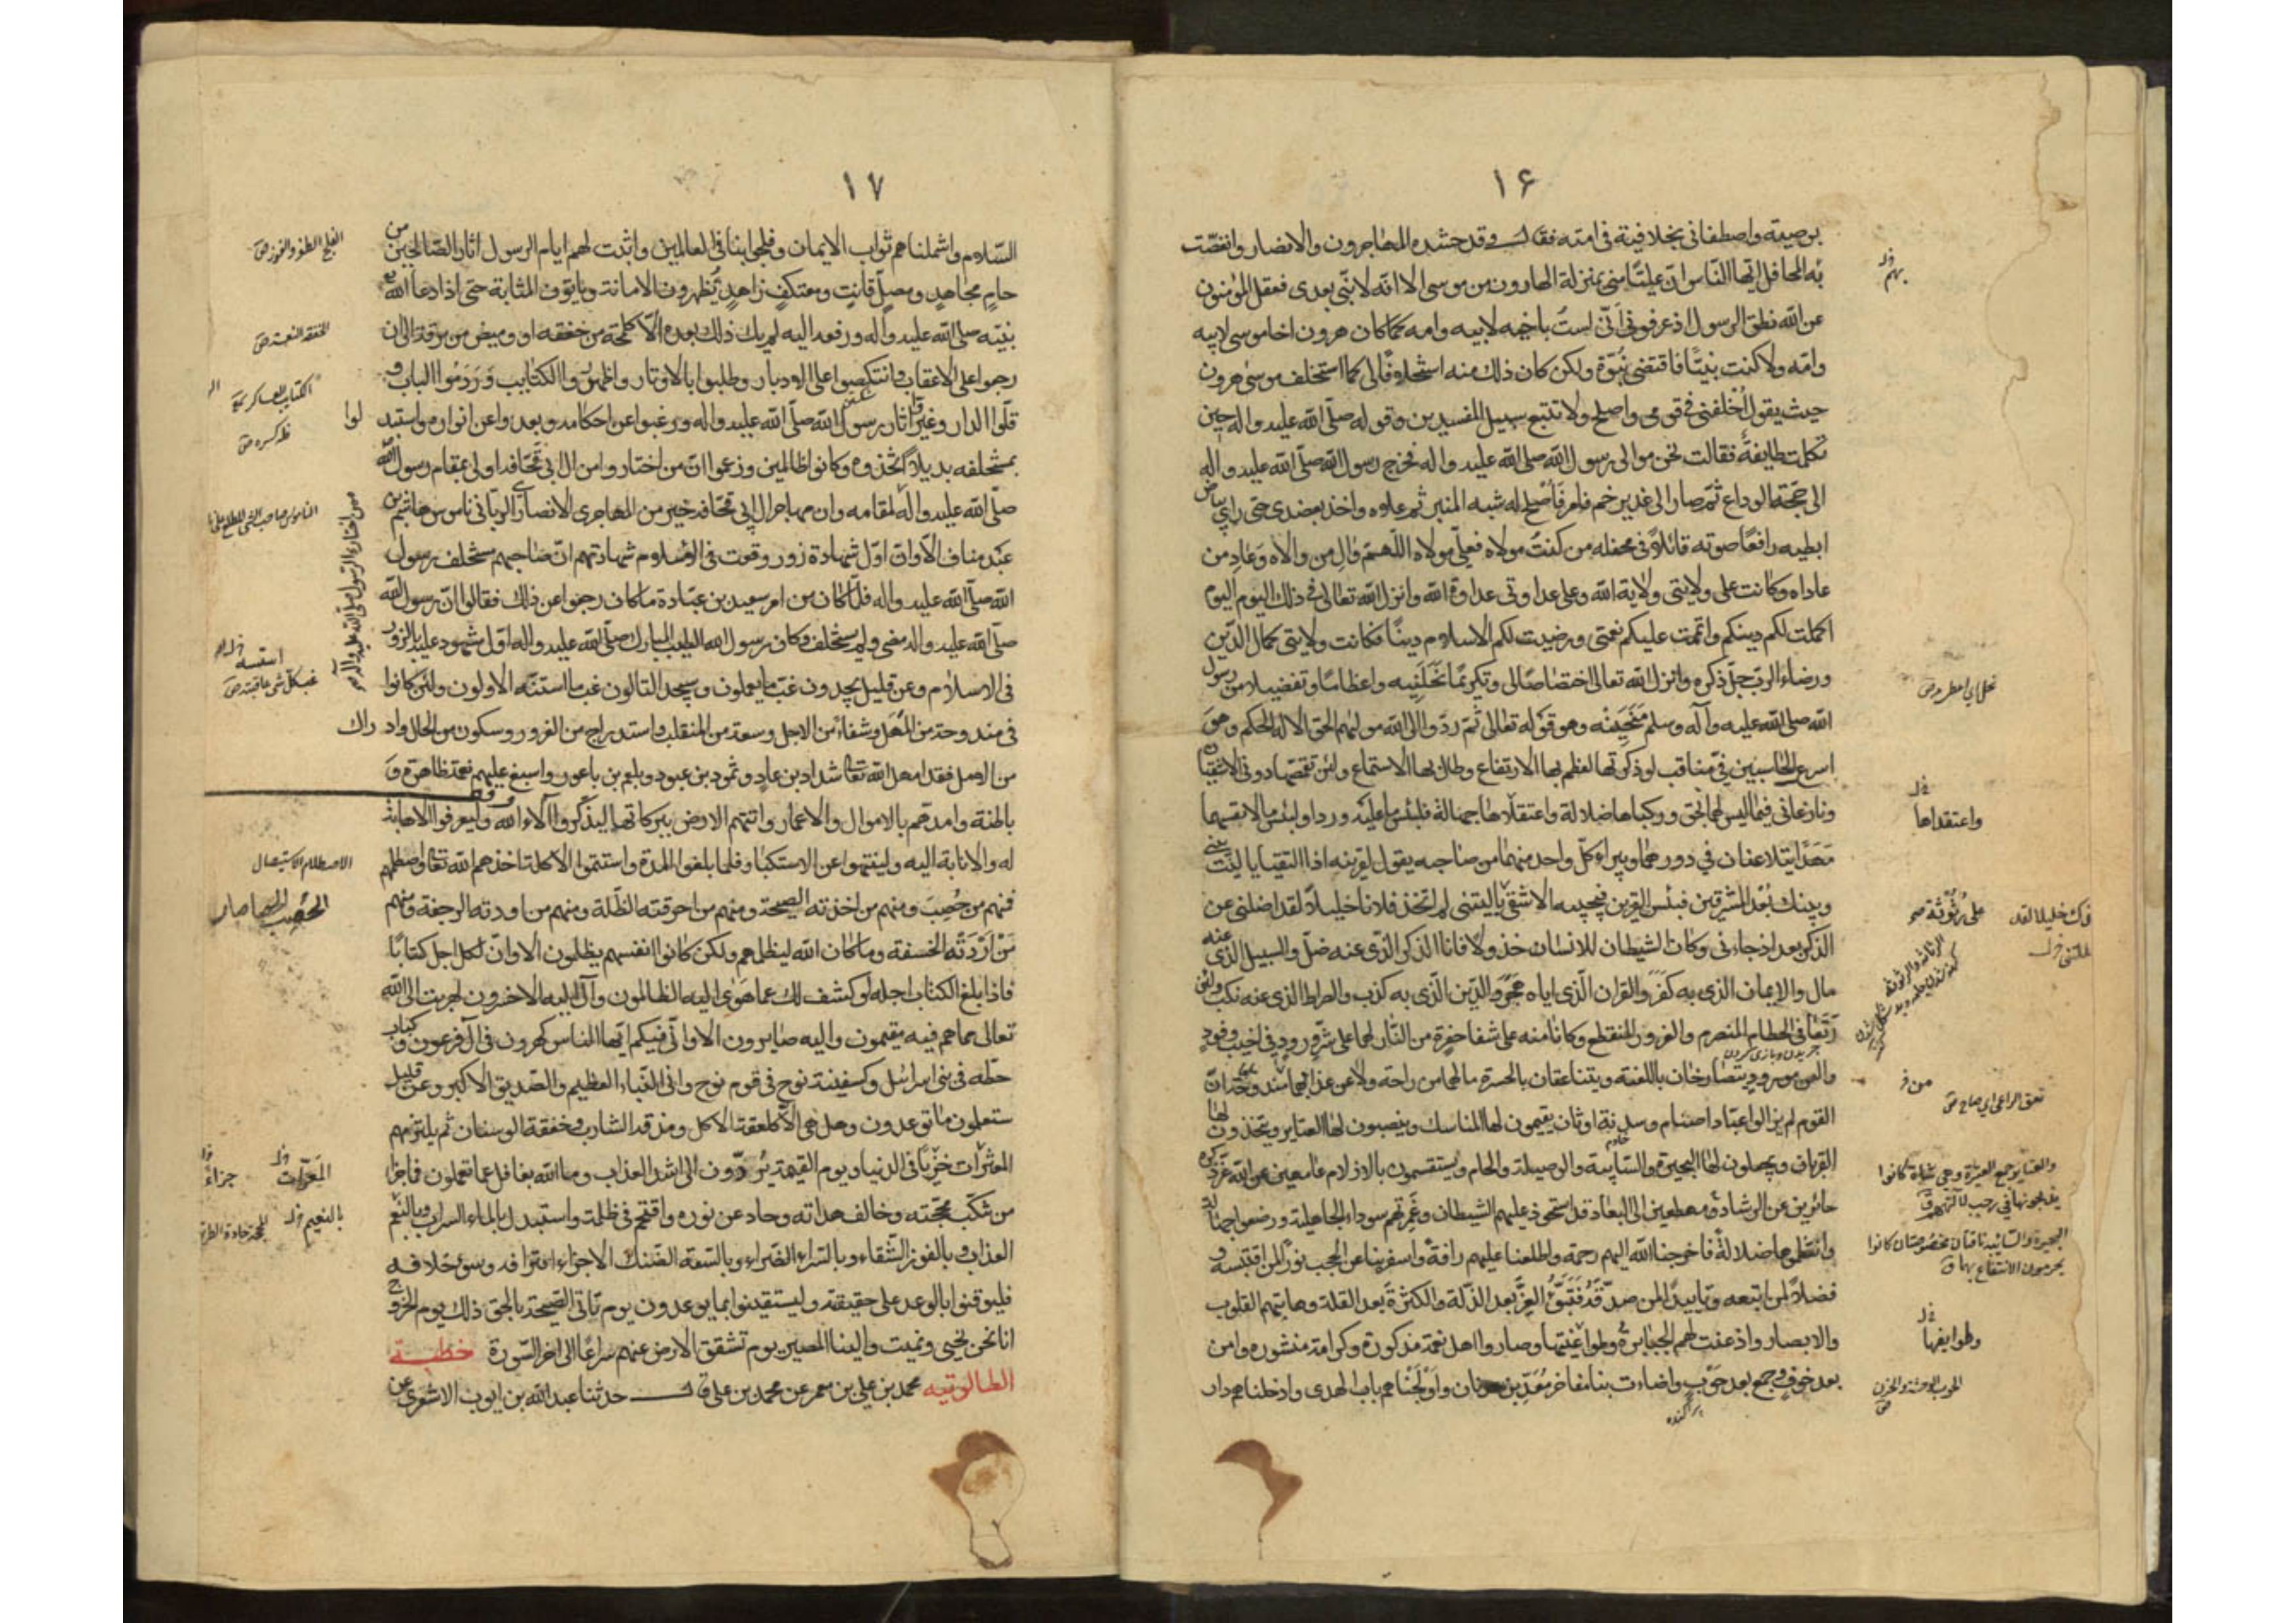 ١۶
بوصيته واصطفانى بخلافته فى امته فقال وقد حشده المهاجرون والانصار وانغصّت
به المحافل ايّها النّاس انّ عليّا منى بمنزلة الهارون من موسى الا انّه لا نبّى بعدى فعقل المؤمنون
عن الله نطق الرسول اذ عرفونى انّى لست باخيه لابيه وامه كما كان هرون اخا موسى لابيه
وامّه ولا كنت نبيّا فاقتضى نبوّة ولكن كان ذلك منه استخلافًا لى كما استخلف موسى هرون
حيث يقول اخلفنى فى قومى واصلح ولا تتبع سبيل المفسدين وقوله صلّى الله عليه واله حين
تكلمت طايفة فقالت نحن موالى رسول الله صلى الله عليه واله فخرج رسول الله صلّى الله عليه واله
الى حجّة الوداع ثمّ صار الى غدير خم فامر فاصلح له شبه المنبر ثم علاه واخذ بعضدى حتى راى بياض
ابطيه رافعًا صوته قائلاً فى محفله من كنت مولاه فعلىّ مولاه اللّهمّ وال من والاه وعاد من
عاداه وكانت على ولايتى ولاية الله وعلى عداوتى عداوة الله وانزل الله تعالى فى ذلك اليوم اليوم
اكملت لكم دينكم واتممت عليكم نعمتى ورضيت لكم الاسلام دينًا فكانت ولايتى كمال الدّين
ورضاء الربّ جلّ ذكره وانزل الله تعالى اختصاصًا لى وتكرمًا نحلنيه واعظامًا وتفضيلا من رسول
الله صلى الله عليه وآله وسلم منحنيه وهو قوله تعالى ثمّ ردّوا الى الله موليهم الحق الا له الحكم وهو
اسرع الحاسبين فىّ مناقب لو ذكرتها لعظم بها الارتفاع وطال بها الاستماع ولئن تقمّصها دونى الاشقيان
ونازعانى فيما ليس لهما بحق وركباها ضلالة واعتقلاها جهالة فلبئس ما عليه وردا ولبئس ما لانفسهما
مهّدا يتلاعنان فى دورهما ويبراء كلّ واحد منهما من صاحبه يقول لقرينه اذا التقيا يا ليت بينى
وبينك بُعْد المشرقين فبئس القرين فيجيبه الاشقى يا ليتنى لم اتخذ فلانا خليلاً لقد اضلنى عن
الذكر بعد اذ جاءنى وكان الشيطان للانسان خذولا فانا الذكر الذى عنه ضلّ والسبيل الذى عنه
مال والايمان الذى به كفر والقران الّذى اياه هجر والدين الّذى به كذب والصراط الذى عنه نكب ولئن
رتعا فى الحطام المنصرم والغرور المنقطع وكانا منه على شفا حفرة من النّار لهما على شرّ ورود فى اخيب وفود
والعن مورود يتصارخان باللعنة ويتناعقان بالحسرة مالهما من راحة ولا عن عذابهما من مندوحة انّ
القوم لم يزالوا عبّاد اصنام وسدنة اوثان يقيمون لها المناسك وينصبون لها العتاير ويتخذون لها
القربان ويجعلون لها البحيرة والسّايبة والوصيلة والحام ويستقسمون بالازلام عامهين عن الله عزّ ذكره
حائرين عن الرشاد ومهطعين الى البعاد قد استحوذ عليهم الشيطان وغمرتهم سوداء الجاهلية ورضعوا جهالة
وانفطموها ضلالة فاخرجنا الله اليهم رحمة واطلعنا عليهم رافة واسفر بنا عن الحجب نورًا لمن اقتبسه و
فضلاً لمن اتبعه وتاييدًا لمن صدّقه فتبوّؤا العزّ بعد الذّلة والكثرة بعد القلة وهابتهم القلوب
والابصار واذعنت لهم الجبابرة وطوايفها وصاروا اهل نعمة مذكورة وكرامة منشورة وامن
بعد خوف وجمع بعد حوب واضاءت بنا مفاخر معدّ بن عدنان واولجناهم باب الهدى وادخلناهم دار
بهم
نحل اى اعطى
واعتقداها
على رثوثة
من
نعق الراعى اى صاح
والعتاير جمع العتيرة وهى شاة كانوا
يذبحونها فى رجب لآلهتهم
البحيرة والسّائبة ناقتان مخصوصتان كانوا
يحرمون الانتفاع بهما
وطوايفها
الحوب الوحشة والحزن
١٧
السّلام واشملناهم ثواب الايمان وفلجوا بنا فى العالمين واثبت لهم ايام الرسول اثار الصّالحين من
حام مجاهد ومصلّ قانت ومعتكف زاهد يظهرون الامانة وياتون المثابة حتى اذا دعا الله
نبيّه صلى الله عليه وآله ورفعه اليه لم يك ذلك بعده الاّ كلمحة من خفقه او وميض من برقة الى ان
رجعوا على الاعقاب وانتكصوا على الادبار وطلبوا بالاوتار واظهروا الكتايب وردموا الباب و
فلّوا الدار وغيروا اثار رسول الله صلّى الله عليه واله ورغبوا عن احكامه وبعدوا عن انواره واستبدلوا
بمستخلفه بديلا اتّخذوه وكانوا ظالمين وزعموا انّ من اختاروا من ال ابى قحافه اولى بمقام رسول الله
صلّى الله عليه واله لمقامه وان مهاجر ال ابى قحافه خير من المهاجرى الانصارى الربّانى ناموس هاشم بن
عبد مناف الا وانّ اوّل شهادة زور وقعت فى الاسلام شهادتهم انّ صاحبهم مستخلف رسول
الله صلّى الله عليه واله فلمّا كان من امر سعد بن عبادة ما كان رجعوا عن ذلك فقالوا انّ رسول الله
صلّى الله عليه واله مضى ولم يستخلف وكان رسول الله الطيب المبارك صلّى الله عليه واله اوّل مشهود عليه بالزور
فى الاسلام وعن قليل يجدون غبّ ما يعملون وسيجد التالون غبّ ما استنّه الاولون ولئن كانوا
فى مندوحة من المهل وشفاء من الاجل وسعة من المنقلب واستدراج من الغرور وسكون من الحال وادراك
من الامل فقد امهل الله تعالى شداد بن عاد وثمود بن عبود وبلعم بن باعور واسبغ عليهم نعمة ظاهرة و
باطنة وامدهم بالاموال والاعمار واتتهم الارض ببركاتها ليذّكّروا آلاء الله وليعرفوا الاهابة
له والانابة اليه ولينتهوا عن الاستكبار فلما بلغوا المدة واستتمّوا الاكلة اخذهم الله تعالى واصطلمهم
فمنهم من حُصِبَ ومنهم من اخذته الصيحة ومنهم من احرقته الظّلة ومنهم من اودته الرجفة ومنهم
من اردته الخسفة وما كان الله ليظلمهم ولكن كانوا انفسهم يظلمون الا وانّ لكل اجل كتابًا
فاذا بلغ الكتاب اجله لو كشف لك عما هوى اليه الظالمون وآل اليه الاخسرون لهربت الى الله
تعالى مما هم فيه مقيمون واليه صايرون الا وانّى فيكم ايّها الناس كهرون فى آل فرعون وكباب
حطّة فى بنى اسرائيل وكسفينة نوح فى قوم نوح وانى النّباء العظيم والصّديق الاكبر وعن قليل
ستعلمون ما توعدون وهل هى الاّ كلعقة الاكل ومذقة الشارب وخفقة الوسنان ثم يلتزمهم
المعرّات خزيًا فى الدنيا ويوم القيمة يردّون الى اشدّ العذاب وما الله بغافل عما تعملون فما جزا
من تنكّب محجّته وخالف هداته وحاد عن نوره واقتحم فى ظلمة واستبدل بالماء السراب وبالنّعم
العذاب وبالفوز الشّقاء وبالسّراء الضّراء وبالسّعة الضّنك الا جزاء اقترافه وسوء خلافه
فليوقنوا بالوعد على حقيقته وليستيقنوا بما يوعدون يوم تاتى الصّيحة بالحق ذلك يوم الخروج
انا نحن نحيى ونميت والينا المصير يوم تشقق الارض عنهم سراعًا الى اخر السّورة خطبة
الطالوتيه محمد بن على بن معمر عن محمد بن على قال حدثنا عبد الله بن ايوب الاشعرى عن
الفلج الظفر والفوز
الخفقه النعسة
الكتايب العساكر
ممن اختاره الرسول صلى الله عليه وآله
غب كل شى عاقبته
الاصطلام الاستيصال
الحَصِب
المَعَرّات
جزاءُ
بالنعيم